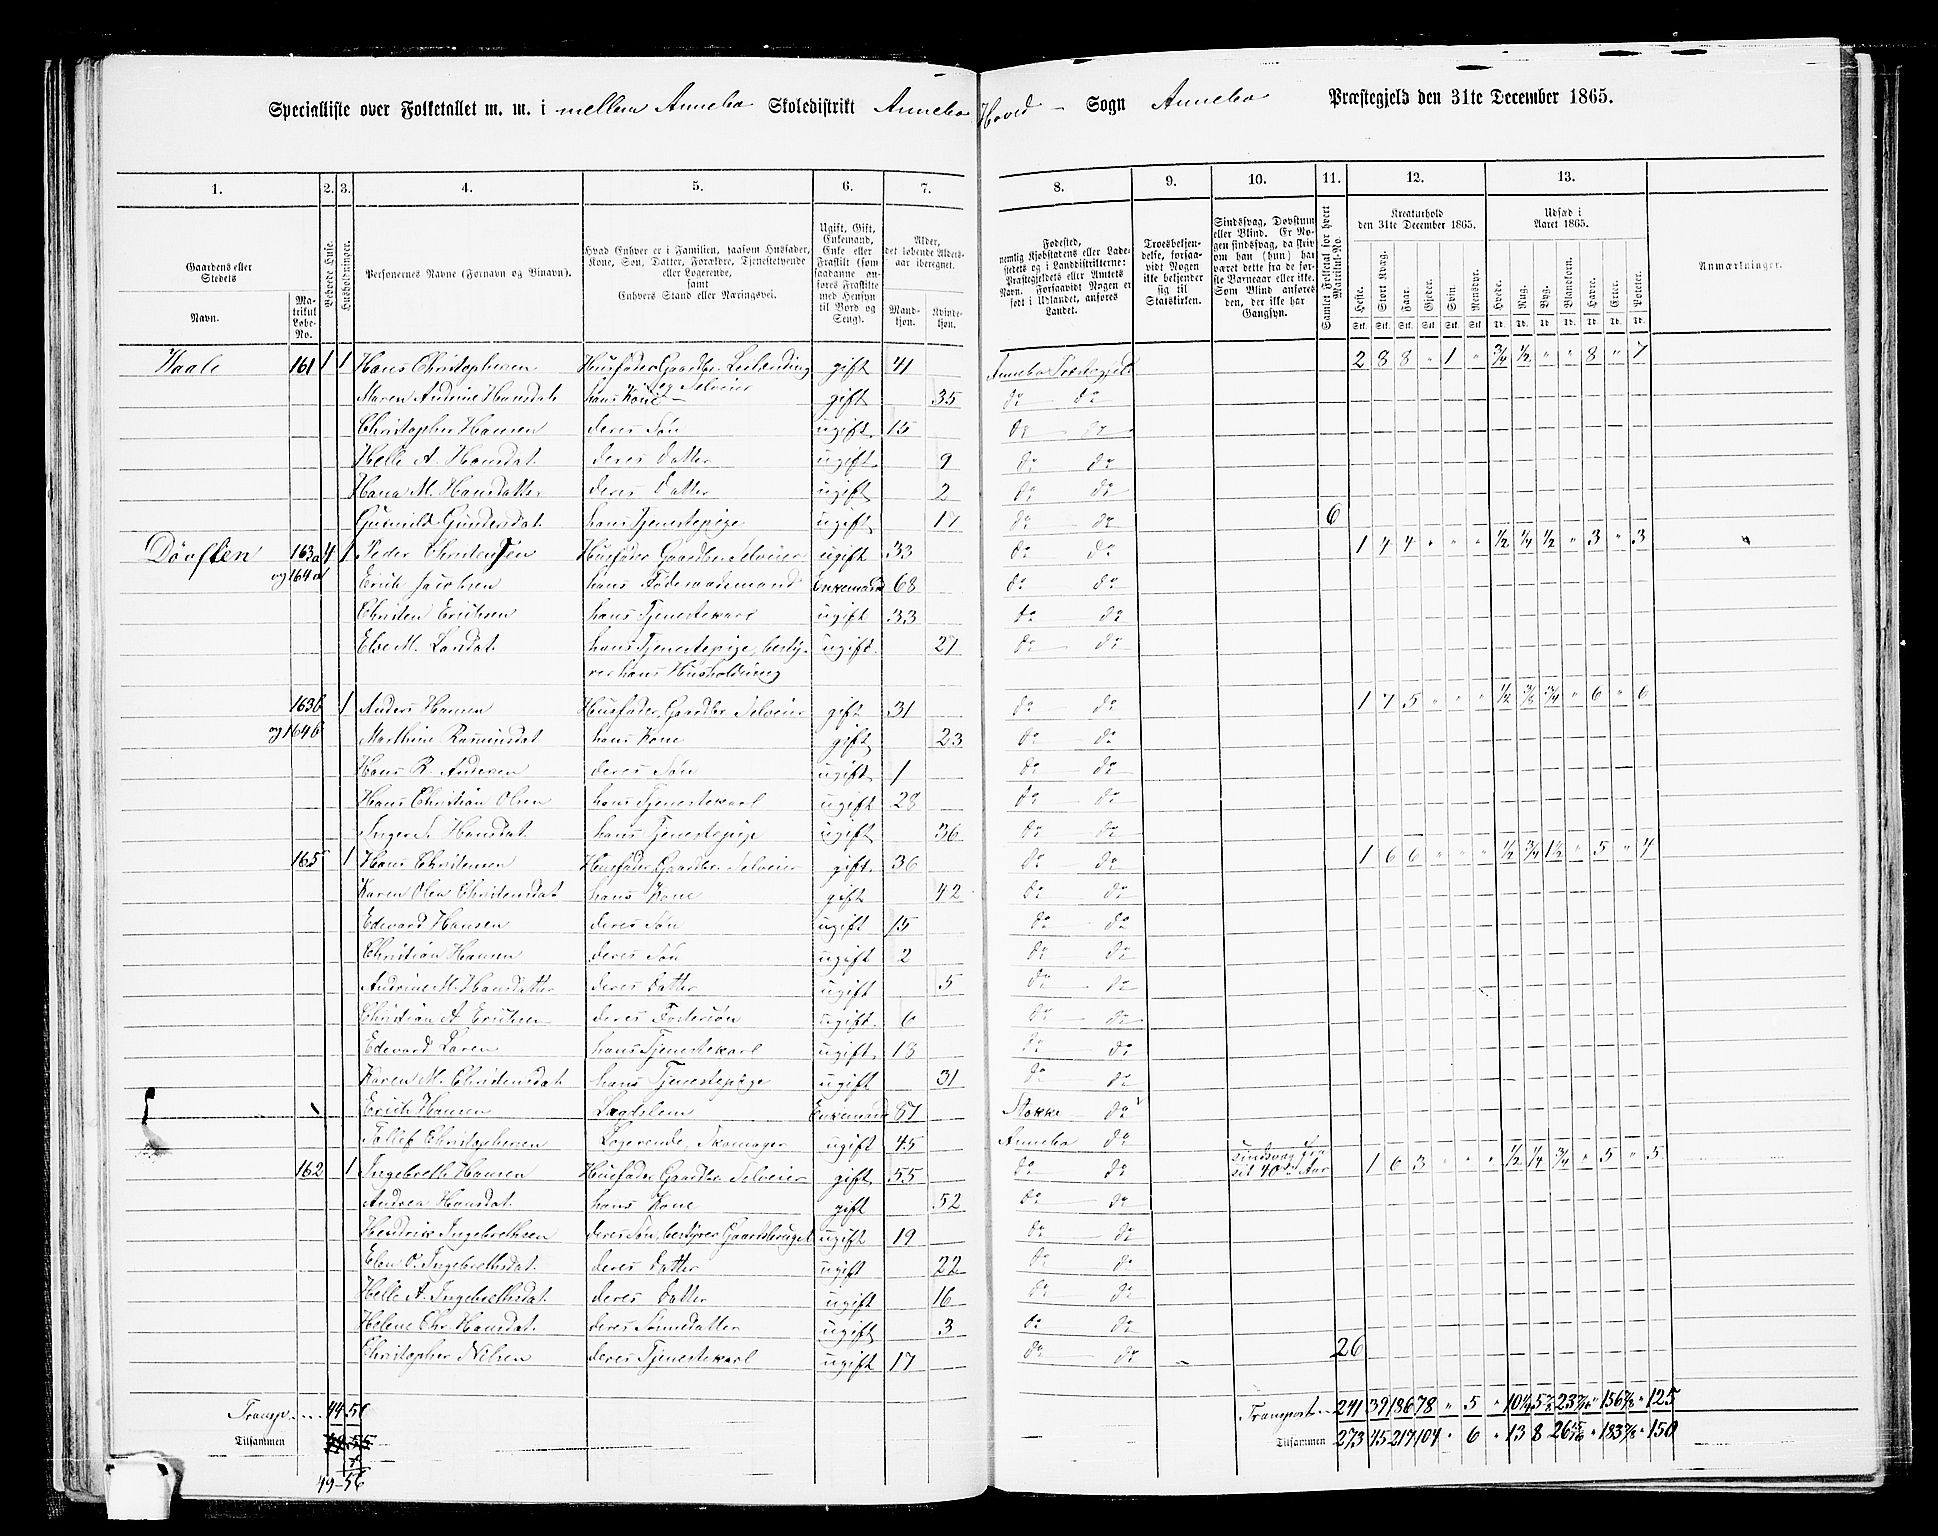 Specialliste over Folketallet m. m. i mellem Annebo Skoledistrikt Annebo Hoved - Sogn Annebo Præstegjeld den 31te December 1865.
1. 2. 3. 4. 5. 6. 7. 8. 9. 10. 11. 12. 13.
Gaardens eller Stedets
Navn.
Matrikul Løbe-No.
Beboede Huse.
Husholdninger.
Personernes Navne (Fornavn og Tilnavn).
Hvad Enhver er i Familien, saasom Husfader, Kone, Søn, Datter, Forældre, Tjenestetyende eller Logerende, samt Enhvers Stand eller Næringsvei.
Ugift, Gift, Enkemand, Enke eller Fraskilt (som saadanne anføres Fraskilte med Hensyn til Bord og Seng).
Alder, det løbende Aldersaar iberegnet.
Mandkjøn. Kvindekjøn.
Fødested, nemlig Kjøbstadens eller Ladestedets og i Landdistrikterne: Præstegjeldets eller Amtets Navn. Forsaavidt Nogen er født i Udlandet, anføres Landet.
Troesbekjendelse, forsaavidt Nogen ikke bekjender sig til Statskirken.
Sindssvag, Døvstum eller Blind. Er Nogen sindssvag, da skriv om han (hun) har været dette fra de første Barneaar eller ikke. Som Blind anføres den, der ikke har Gangsyn.
Samlet Folketal for hvert Matrikul-No.
Kreaturhold den 31te December 1865.
Heste. Stort Kvæg. Faar. Gjeder. Svin. Rensdyr.
Udsæd i Aaret 1865.
Hvede. Rug. Byg. Blandkorn. Havre. Erter. Poteter.
Anmærkninger.
Haale 161 1 1 Hans Christophersen Husfader, Gaardbr. Leilænding og Selveier gift 41 Annebo Præstegjeld 2 8 8 " 1 " 3/4 1/2 " " 8 " 7
Maren Andrine Hansdat. hans Kone gift 35 do do
Christopher Hansen deres Søn ugift 15 do do
Helle A. Hansdat. deres Datter ugift 9 do do
Hana M. Hansdatter deres Datter ugift 2 do do
Gunnild Gundersdat. hans Tjenestepige ugift 17 do do 6
163a 4 1 Peder Christensen Husfader, Gaardbr. Selveier ugift 33 do do 1 4 4 " " " 1/2 1/4 1/2 " 3 " 3
og 164a Erich Jacobsen hans Føderaadsmand Enkemand 68 do do
Christen Erichsen hans Tjenestekarl ugift 33 do do
Else M. Larsdat. hans Tjenestepige, bestyrer hans Husholdning ugift 27 do do
163b 1 Anders Hansen Husfader, Gaardbr. Selveier gift 31 do do 1 7 5 " " " 1/2 3/4 " 6 " 6
og 164b Marthine Rasmusdat hans Kone gift 23 do do
Hans R. Andersen deres Søn ugift 1 do do
Hans Christian Olsen hans Tjenestekarl ugift 28 do do
Inger S. Hansdat. hans Tjenestepige ugift 36 do do
165 1 Hans Christensen Husfader, Gaardbr. Selveier gift 36 do do 1 6 6 " " " 1/2 3/4 1 1/2 " 5 " 4
Karen Olea Christensdat hans Kone gift 42 do do
Edevard Hansen deres Søn ugift 15 do do
Christian Hansen deres Søn ugift 2 do do
Andrine M. Hansdatter deres Datter ugift 5 do do
Christian A. Erichsen deres Fostersøn ugift 6 do do
Edevard Larsen hans Tjenestekarl ugift 13 do do
Karen M. Christensdat hans Tjenestepige ugift 31 do do
Erich Hansen Lægdslem Enkemand 67 Stokke do
Tollef Christophersen Logerende, Skomager ugift 45 Annebo do
162 1 Ingebreth Hansen Husfader, Gaardbr. Selveier gift 55 do do sindsvag fra sit 40de Aar 1 6 3 " " " 1/2 1/4 3/4 " 5 " 5
Andrea Hansdat. hans Kone gift 52 do do
Hendrik Ingebrethsen deres Søn, bestyrer Gaardsbruget ugift 19 do do
Elen O. Ingebrethsdat. deres Datter ugift 22 do do
Helle A. Ingebrethsdat. deres Datter ugift 16 do do
Helene Chr. Hansdat. deres Sønnedatter ugift 3 do do
Christopher Nilsen deres Tjenestekarl ugift 17 do do 26
Transp. 44 Transport 241 39 186 78 " 5 " 125
Tilsammen Tilsammen 273 45 217 104 " 6 " 13 8 150
49-56